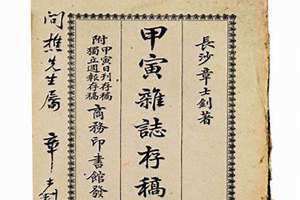 長沙章士釗著
甲寅雜誌存稿
附甲寅日刊存稿
獨立週報存稿
商務印書館發
問樵先生屬
章士釗